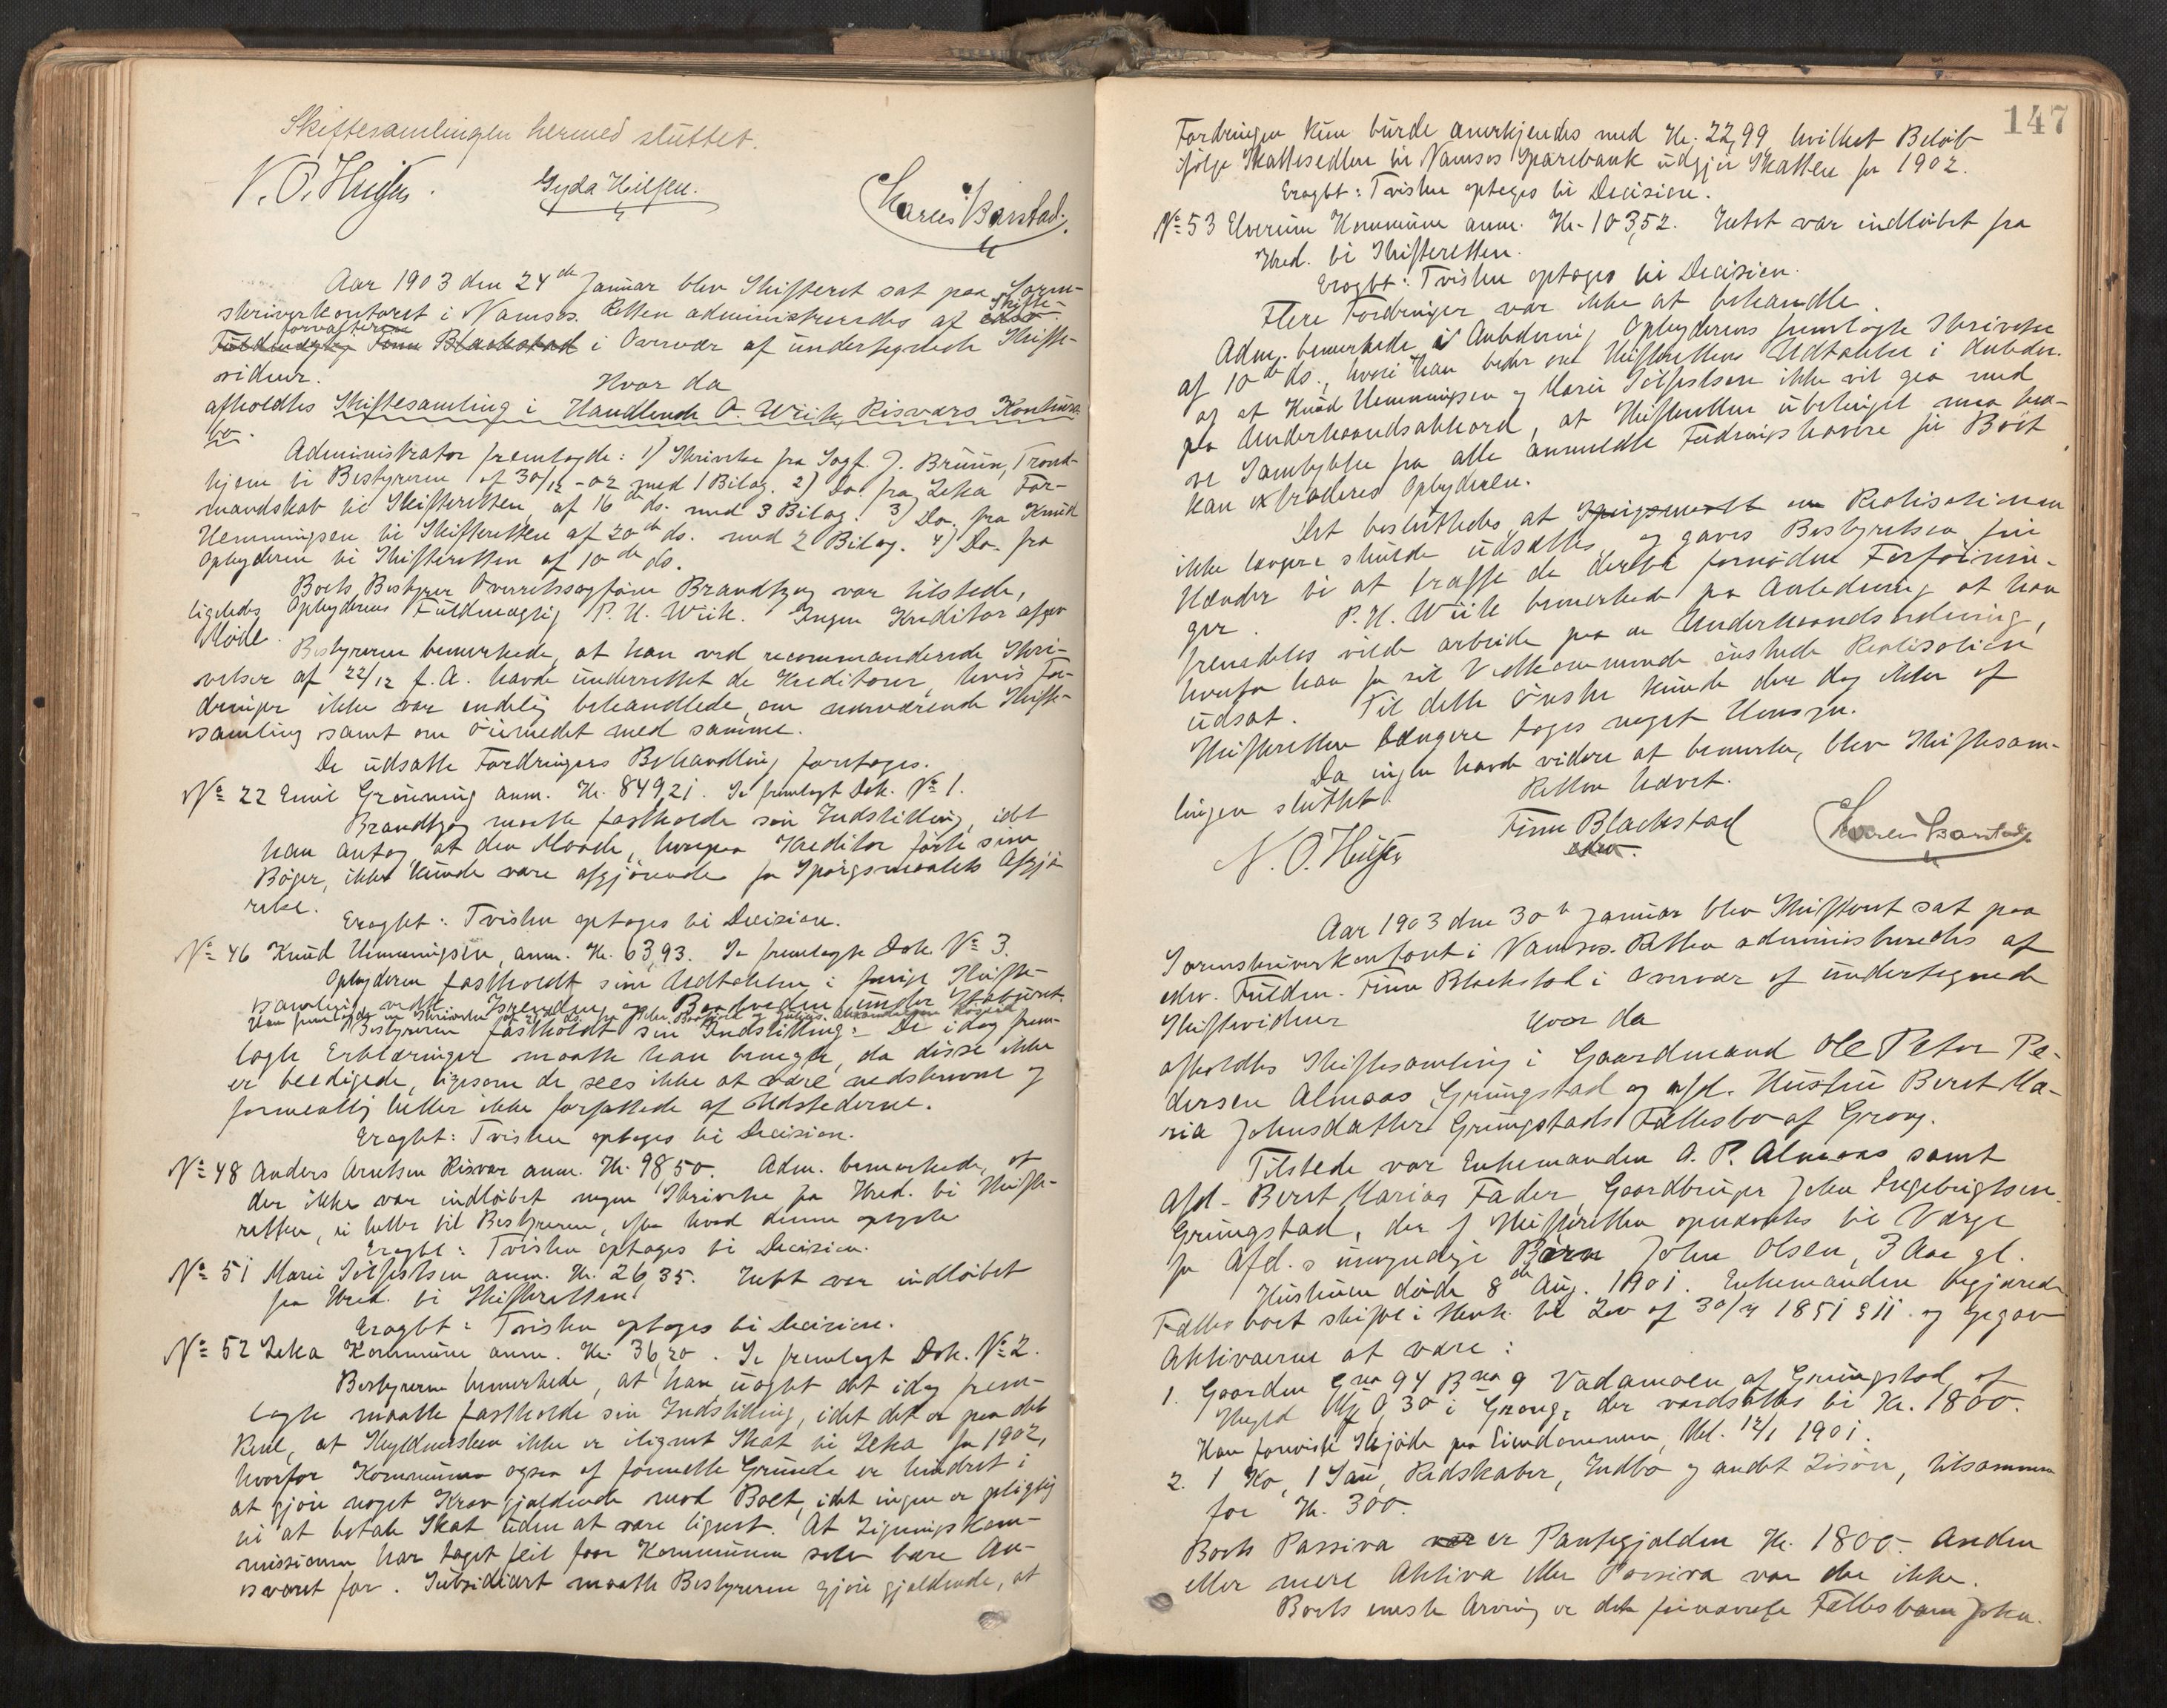 Skiftesamlingen hermed sluttet.
Gyda Hilsen.
Aar 1903 den 24de Januar blev Skifteret sat paa Soren-
skriverkontoret i Namsos. Retten administreredes af Skifte-
forvalteren
Fuldmægtig Finn Blackstad i Overvær af undertegnede Skifte-
vidner.
Hvor da
afholdtes Skiftesamling i Handlende O. Wiik, Risværs Konkurs-
bo.
Administrator fremlagde: 1) Skrivelse fra Sagf. J. Bruun, Trond-
hjem til Bestyreren af 30/12-02 med 1 Bilag. 2) Do. fra Leka For-
mandskab til Skifteretten af 16de ds. med 3 Bilag. 3) Do. fra Knud
Hemmingsen til Skifteretten af 20de ds. med 2 Bilag. 4) Do. fra
Opbyderen til Skifteretten af 10de ds.
Boets Bestyrer Overretssagfører Brandtzæg var tilstede,
ligeledes Opbyderens Fuldmægtig P. H. Wiik. Ingen Kreditor afgav
Møde.
Bestyreren bemærkede, at han ved recommanderede Skri-
velser af 22/12 f.A. havde underrettet de Kreditorer, hvis For-
dringer ikke var endelig behandlede, om nærværende Skifte-
samling samt om Øiemedet med samme.
De udsatte Fordringers Behandling foretoges.
No 22 Emil Grønning anm. Kr. 849,21. Se fremlagt Dok. No 1.
Brandtzæg maatte fastholde sin Indstilling, idet
han antog, at den Maade, hvorpaa Kreditor førte sine
Bøger, ikke kunde være afgjørende for Spørgsmaalets Afgjø-
relse.
Eragtet: Tvisten optages til Decision.
No 46 Knud Hemmingsen, anm. Kr. 63,93. Se fremlagte Dok. No 3.
Opbyderen fastholdt sine Udtalelser i forrige Skifte-
samling vedk. og Baadveden under Stabburet.
Bestyreren fastholdt sin Indstilling: De idag frem-
lagte Erklæringer maatte han benegte, da disse ikke
er beedigede, ligesom de sees ikke at være nedskrevne og
formentlig heller ikke forfattede af Udstederne.
Eragtet: Tvisten optages til Decision.
No 48 Anders Arntsen Risvær anm. Kr. 98,50. Adm. bemærkede, at
der ikke var indløbet nogen Skrivelse fra Kred. til Skifte-
retten, ei heller til Bestyreren, efter hvad denne oplyste
Eragtet: Tvisten optages til Decision.
No 51 Marie anm. Kr. 26,35. Intet var indløbet
fra Kred. til Skifteretten.
Eragtet: Tvisten optages til Decision.
No 52 Leka Kommune anm. Kr. 36,20. Se fremlagt Dok. No 2.
Bestyreren bemærkede, at han uagtet det idag frem-
lagte maatte fastholde sin Indstilling, idet det er paa det
Rene, at Skyldneren ikke er ilignet Skat til Leka for 1902,
hvorfor Kommunen ogsaa af formelle Grunde er hindret i
at gjøre noget Krav gjældende mod Boet, idet ingen er pligtig
til at betale Skat uden at være lignet. At Ligningskom-
missionen har taget feil faar Kommunen selv bære An-
svaret for. Subsidiært maatte Bestyreren gjøre gjældende, at
147
Fordringen kun burde anerkjendes med Kr. 22,99 hvilket Beløb
ifølge Skattesedlen til Namsos Sparebank udgjør Skatten for 1902.
Eragtet: Tvisten optages til Decision.
No 53 Elverum Kommune anm. Kr. 103,52. Intet var indløbet fra
Kred. til Skifteretten.
Eragtet: Tvisten optages til Decision.
Flere Fordringer var ikke at behandle.
Adm. bemærkede i Anledning Opbyderens fremlagte Skrivelse
af 10de ds., hvori han beder om Skifterettens Udtalelse i Anledn.
af at Knud Hemmingsen og Marie ikke vil gaa med
paa Underhaandsakkord, at Skifteretten ubetinget maa kræ-
ve Samtykke fra alle anmeldte Fordringshavere før Boet
kan extraderes Opbyderen.
Det besluttedes, at Spørgsmaalet om Realisationen
ikke længere skulde udsættes, og gaves Bestyrelsen frie
Hænder til at træffe de dertil fornødne Forføinin-
ger. P. H. Wiik bemærkede paa Anledning at han
fremdeles vilde arbeide paa en Underhaandsordning,
hvorfor han for sit Vedkommende ønskede Realisationen
udsat. Til dette Ønske kunde der dog ikke af
Skifteretten længere tages noget Hensyn.
Da ingen havde videre at bemærke, blev Skiftesam-
lingen sluttet. Retten hævet.
Finn Blackstad
edsv.
Aar 1903 den 30te Januar blev Skifteret sat paa
Sorenskriverkontoret i Namsos. Retten administreredes af
edsv. Fuldm. Finn Blackstad i Overvær af undertegnede
Skiftevidner Hvor da
afholdtes Skiftesamling i Gaardmand Ole Peter Pe-
dersen Almaas Grungstad og afd. Hustru Beret Ma-
ria Johnsdatter Grungstads Fællesbo af Grong.
Tilstede var Enkemanden O. P. Almaas samt
Afd. Beret Marias Fader, Gaardbruger John Ingebrigtsen
Grungstad, der af Skifteretten opnævntes til Værge
for Afd.s umyndige Barn John Olsen, 3 Aar gl.
Hustruen døde 8de Aug. 1901. Enkemanden begjærede
Fællesboet skiftet i Henh. til Lov af 30/7 1851 § 11 og opgav
Aktivaerne at være:
1. Gaarden Gno 94 Bno 9 Vadamoen af Grungstad, af
Skyld Mk 0,30 i Grong, der værdsattes til Kr. 1800.
Han foreviste Skjøde paa Eiendommen, thl. 12/1 1901.
2. 1 Ko, 1 Sau, Redskaber, Indbo og andet Løsøre, tilsammen
for Kr. 300.
Boets Passiva var er Pantegjælden Kr. 1800. Anden
eller mere Aktiva eller Passiva var der ikke.
Boets eneste Arving er det fornævnte Fællesbarn John.